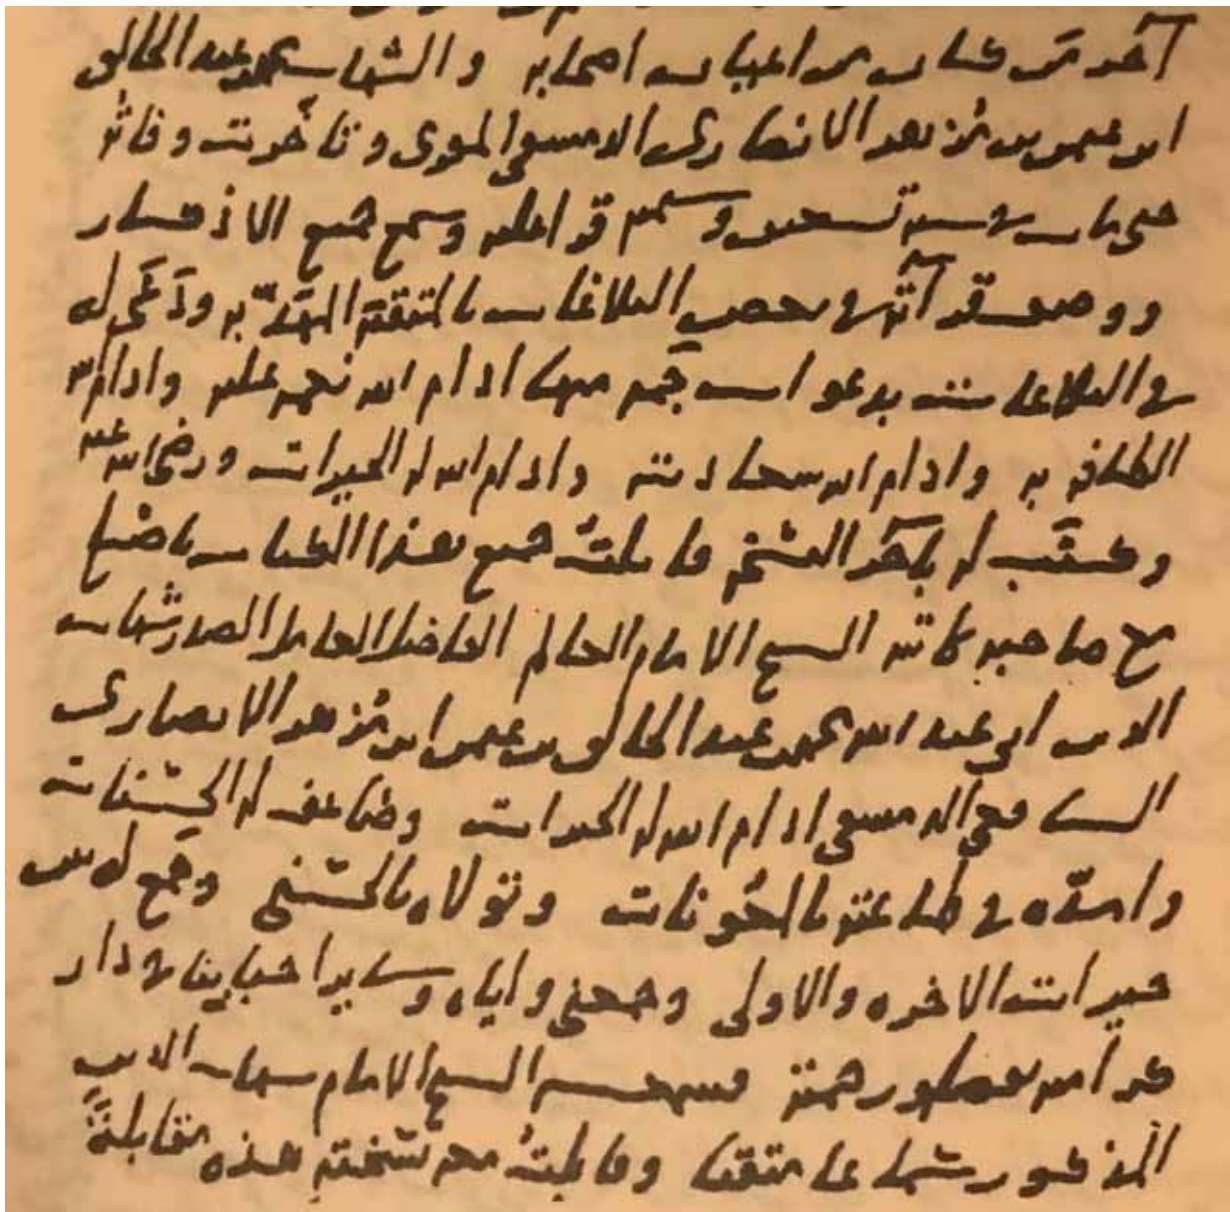 آخر من كتاب من اعيان اصحابه والشهاب محمد بن عبد الخالق
ابن عمر بن مزهر الانصاري الدمشقي المقري وتأخرت وفاته
حتى مات في سنة تسعين وستمئة قرا عليه وسمع جميع الاذكار
ووصف قرآته في بعض البلاغات بالمتقنة المهذبة ودعى له
في البلاغات بدعوات جمة منها ادام الله نعمه عليه وادام الله
الطافه به وادام الله سعادته وادام الله له الخيرات ورضي الله عنه
وكتب له بآخر النسخة قابلتُ جميع هذا الكتاب
مع صاحبه كاتبه الشيخ الامام العالم الفاضل العامل الصدر شهاب
الدين ابي عبد الله محمد بن عبد الخالق بن عمر ابن مزهر الانصاري
الشافعي الدمشقي ادام الله له الخيرات وضاعف له الحسنات
وامدّه في طاعته بالمعُونات وتولاه بالحسنى وجمع له بين
خيرات الاخره والاولى وجمعني واياه وساير احبابنا في دار
كرامته بفضله ورحمته فسمعه الشيخ الامام شهاب الدين
المذكور سماعا متقنا وقابلتُ معه نسخته هذه مقابلةً